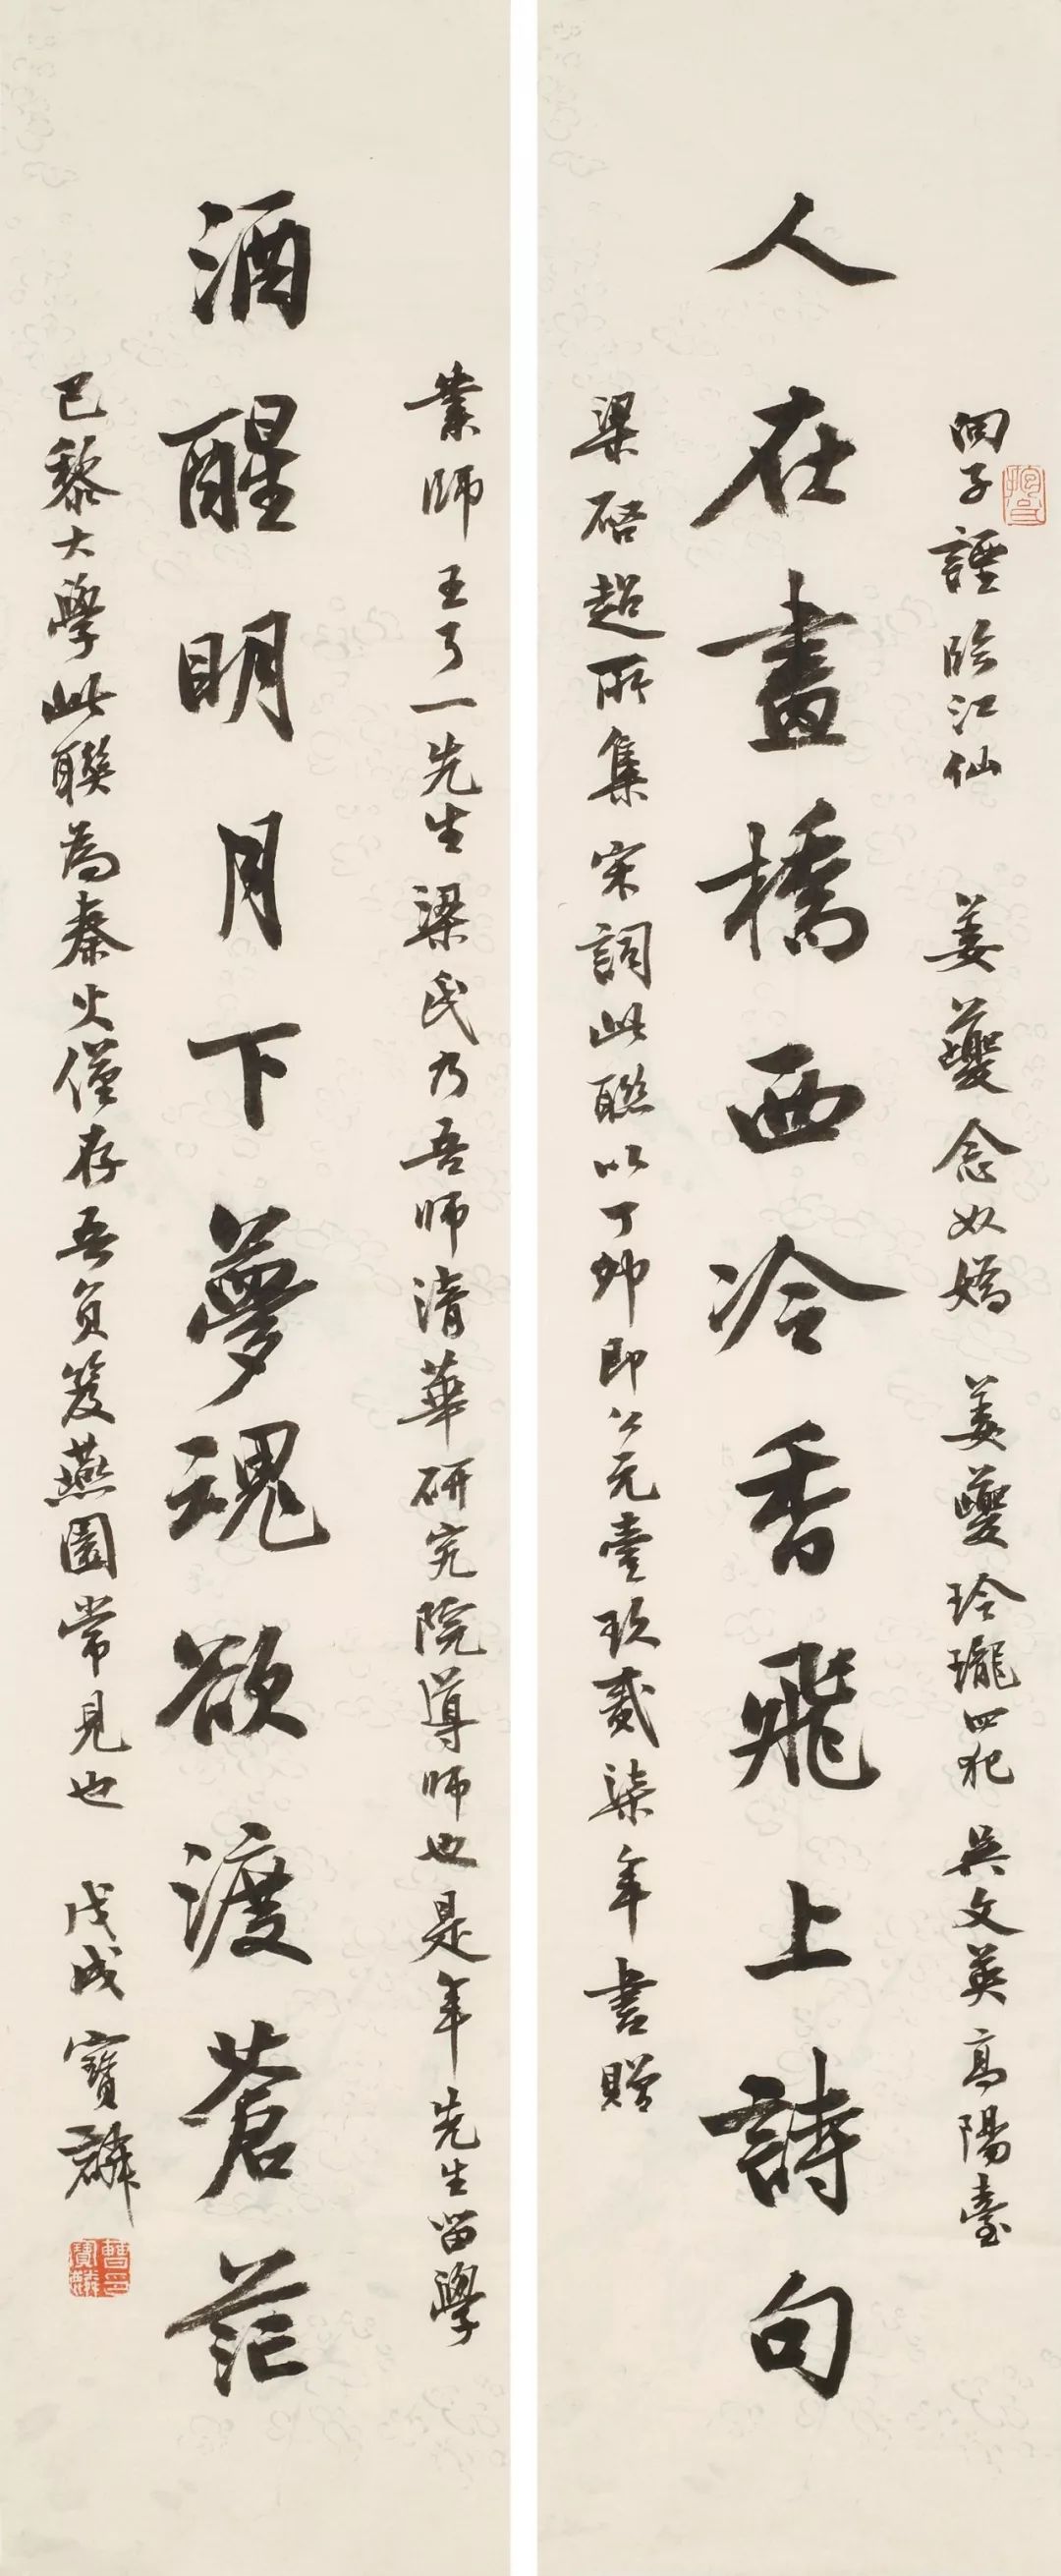 向子諲臨江仙 姜夔念奴嬌 姜夔玲瓏四犯 吳文英高陽臺
人在畫橋西冷香飛上詩句
梁啓超所集宋詞此聯以丁卯即公元壹玖貳柒年書贈
業師王了一先生梁氏乃吾師清華研究院導師也是年先生留學
酒醒明月下夢魂欲渡蒼茫
巴黎大學此聯為秦火僅存吾負笈燕園常見也 戊戌寶麟
曹寶麟印